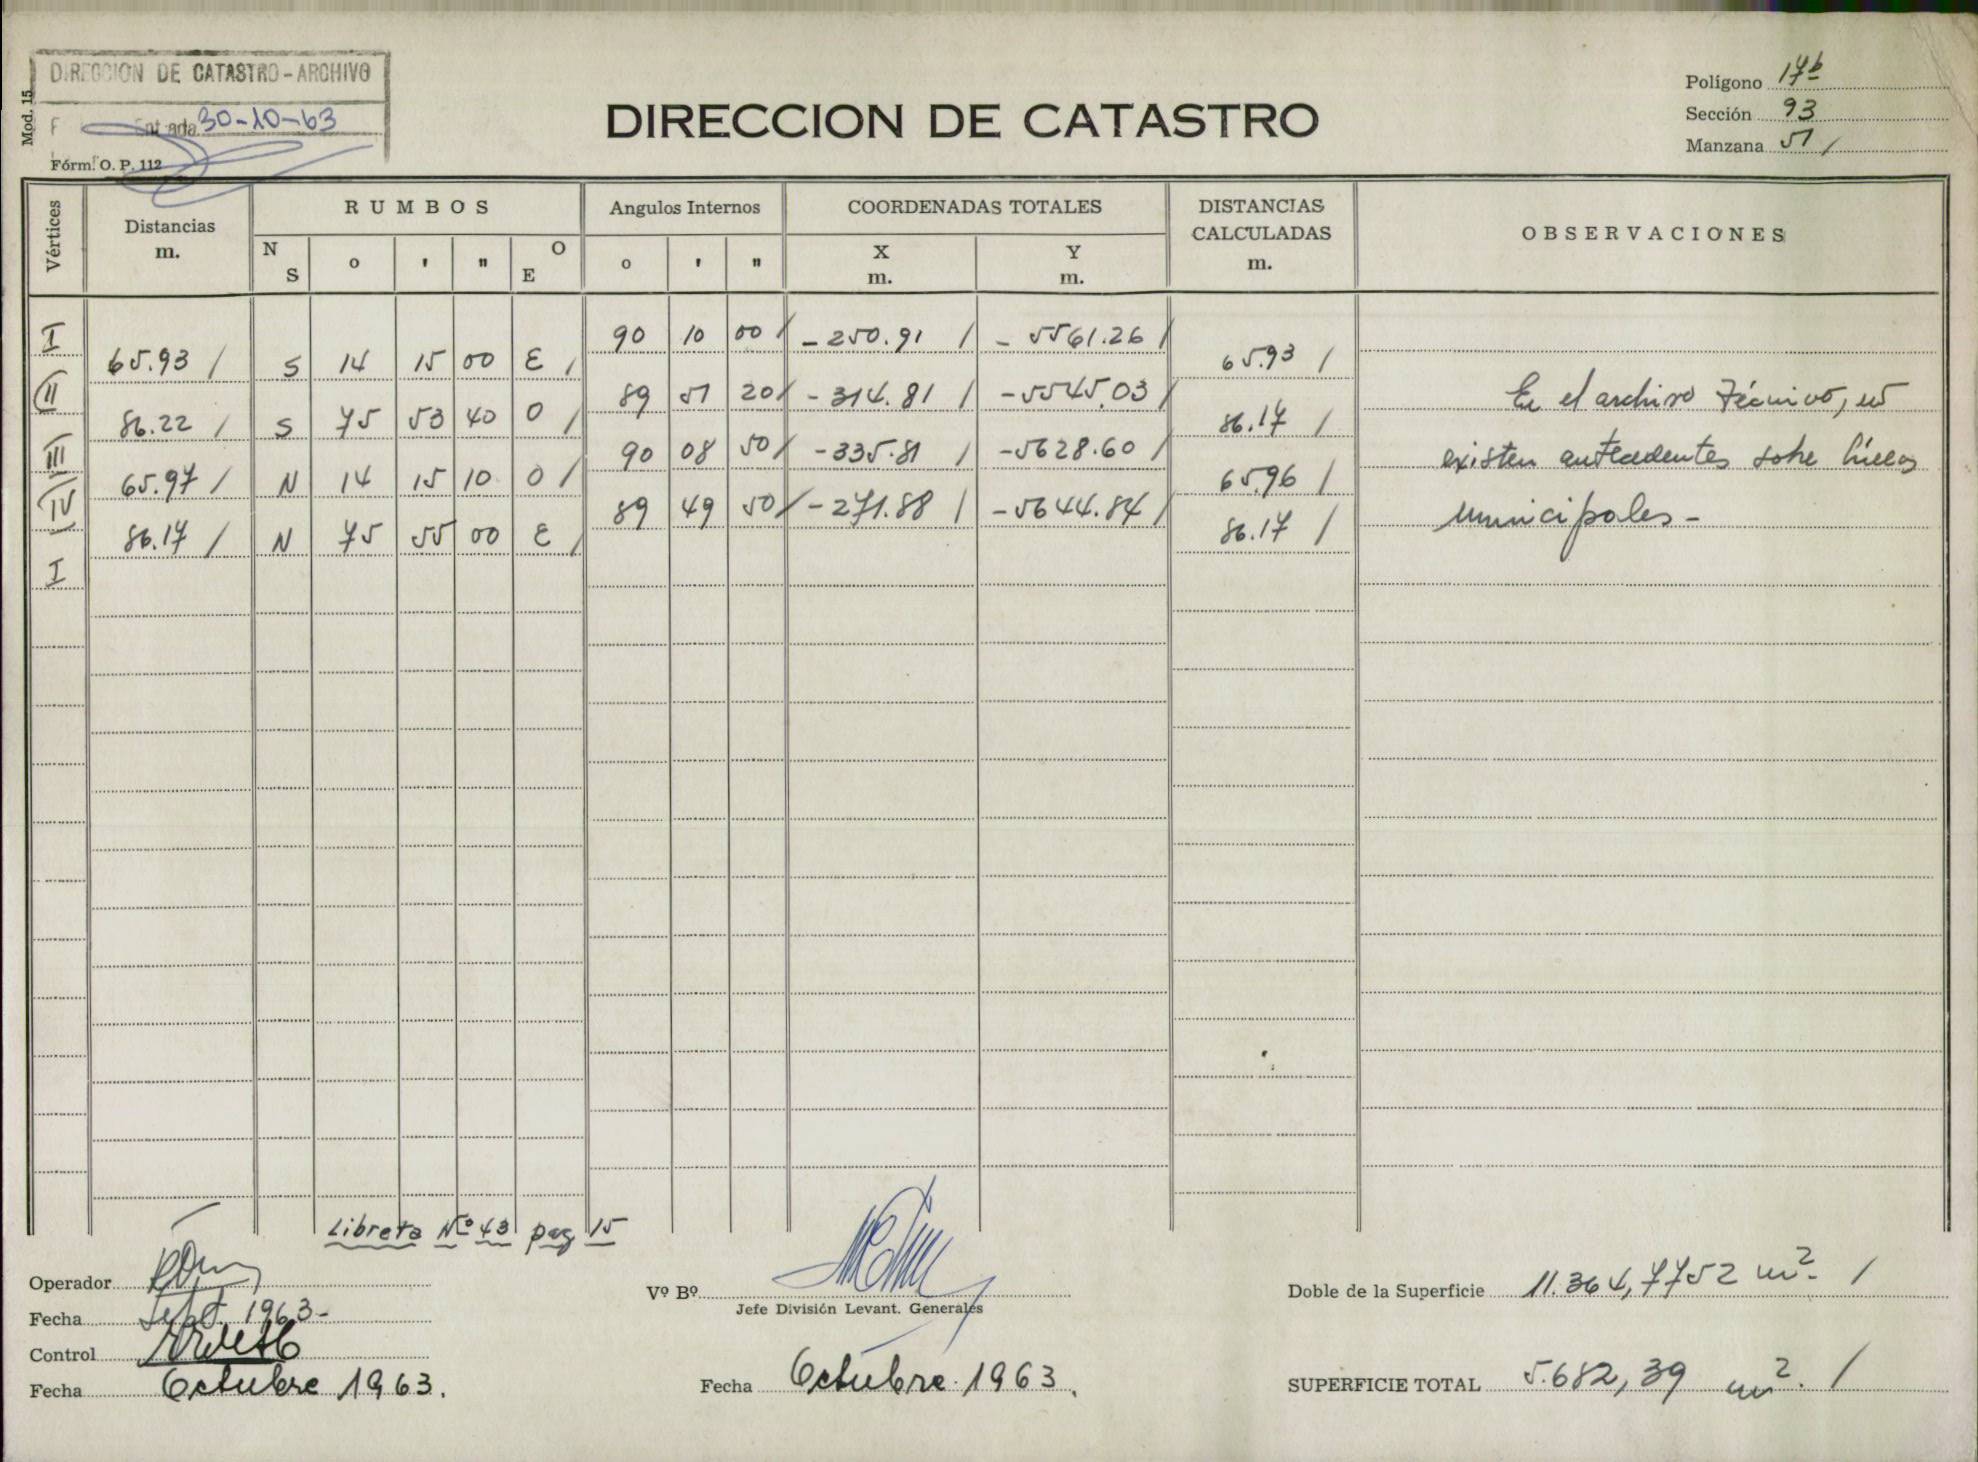 DIRECCION DE CATASTRO-ARCHIVO
Mod. 15
F Entrada 30-10-63
Fórm. O. P. 112
DIRECCION DE CATASTRO
Polígono 17b
Sección 93
Manzana 51 /
Vértices
Distancias
m.
RUMBOS
N
S
o
'
"
O
E
Angulos Internos
o
'
"
COORDENADAS TOTALES
X
m.
Y
m.
DISTANCIAS
CALCULADAS
m.
OBSERVACIONES
I 90 10 00 / -250.91 / - 5561.26 /
65.93 / S 14 15 00 E / 65.93 /
II 89 51 20 / -314.81 / -5545.03 /
86.22 / S 75 53 40 O / 86.17 /
III 90 08 50 / -335.81 / -5628.60 /
65.97 / N 14 15 10 O / 65.96 /
IV 89 49 50 / -271.88 / -5644.84 /
86.17 / N 75 55 00 E / 86.17 /
I
En el archivo Técnico, no
existen antecedentes sobre líneas
municipales-
Libreta Nº 43 pag 15
Operador
Fecha Sept. 1963-
Control
Fecha Octubre 1963.
Vº Bº
Jefe División Levant. Generales
Fecha Octubre 1963.
Doble de la Superficie 11.364,7752 m2. /
SUPERFICIE TOTAL 5.682,39 m2. /